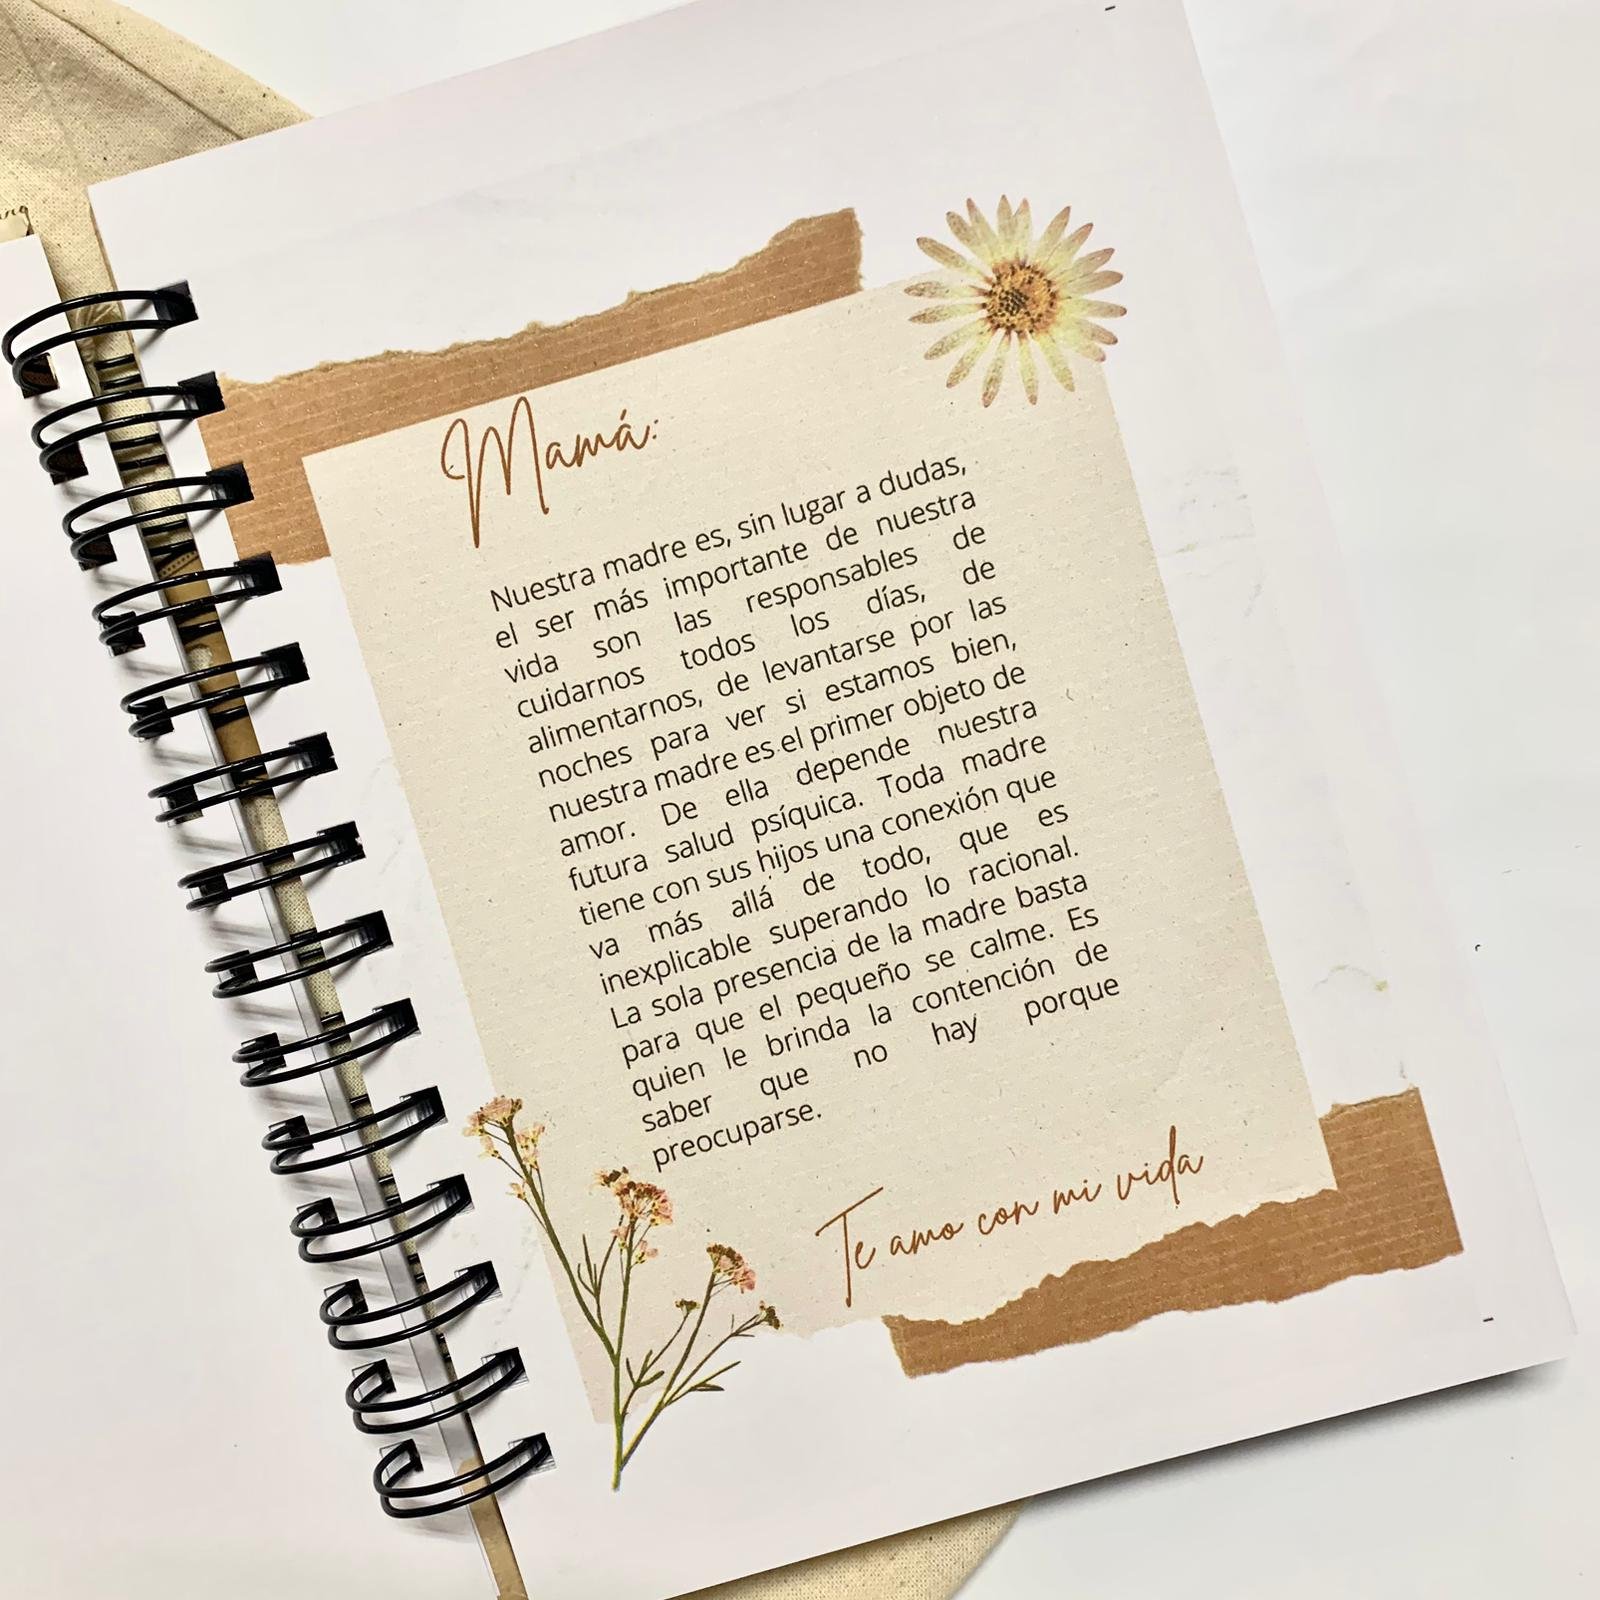 Mamá:
Nuestra madre es, sin lugar a dudas,
el ser más importante de nuestra
vida son las responsables de
cuidarnos todos los días, de
alimentarnos, de levantarse por las
noches para ver si estamos bien,
nuestra madre es el primer objeto de
amor. De ella depende nuestra
futura salud psíquica. Toda madre
tiene con sus hijos una conexión que
va más allá de todo, que es
inexplicable superando lo racional.
La sola presencia de la madre basta
para que el pequeño se calme. Es
quien le brinda la contención de
saber que no hay porque
preocuparse.
Te amo con mi vida